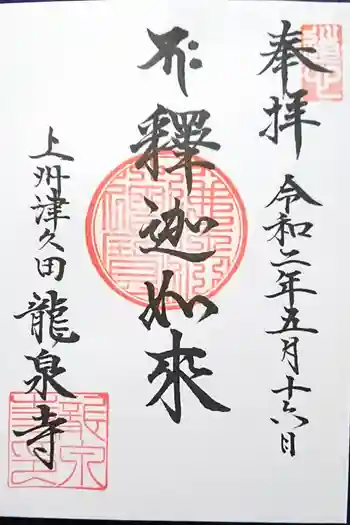 奉拝
令和二年五月十六日
釋迦如來
上州津久田
龍泉寺